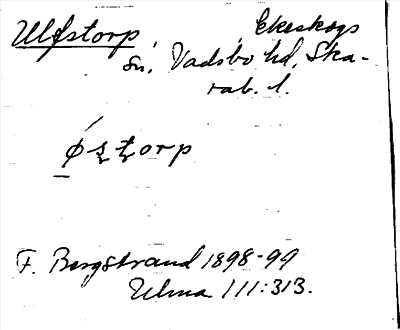 Ulfstorp, Ekeskogs
sn, Vadsbo hd, Ska-
rab. l.
F. Bergstrand 1898-99
Ulma 111:313.